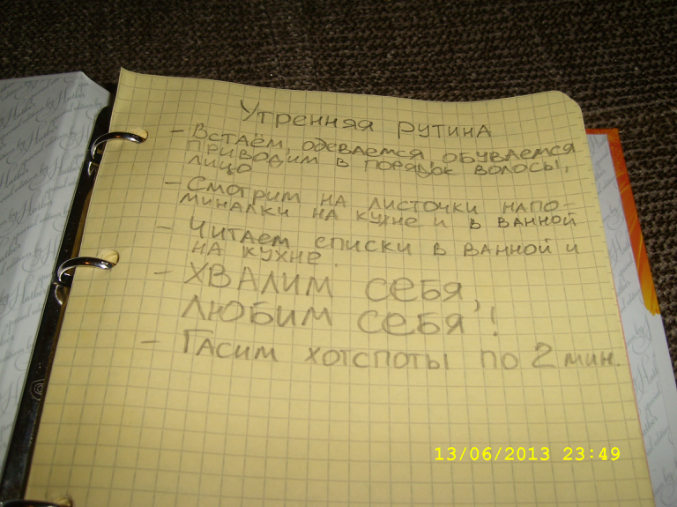 Утренняя рутина
- Встаём, одеваемся, обуваемся
приводим в порядок волосы,
лицо
- Смотрим на листочки напо-
миналки на кухне и в ванной
- Читаем списки в ванной и
на кухне.
- Хвалим себя,
любим себя!
- Гасим хотспоты по 2 мин.
13/06/2013 23:49